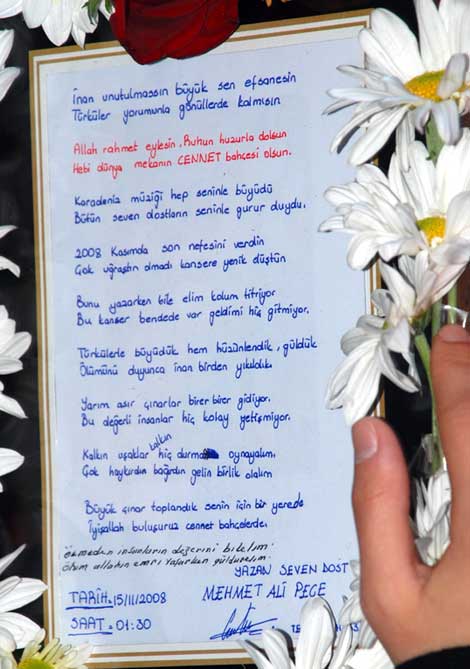 İnan unutulmassın büyük sen efsanesin
Türküler yorumunla gönüllerde kalmışsın
Allah rahmet eylesin, Ruhun huzurla dolsun
Hebi dünya mekanın CENNET bahçesi olsun.
Karadeniz müziği hep seninle büyüdü
Bütün seven dostların seninle gurur duydu.
2008 Kasımda son nefesini verdin
Çok uğraştın olmadı kansere yenik düştün
Bunu yazarken bile elim kolum titriyor
Bu kanser bendede var geldimi hiç gitmiyor.
Türkülerle büyüdük hem hüzünlendik, güldük
Ölümünü duyunca inan birden yıkıldık.
Yarım asır çınarlar birer birer gidiyor.
Bu değerli insanlar hiç kolay yetişmiyor.
Kalkın uşaklar kalkın hiç durma oynayalım.
Çok haykırdın bağırdın gelin birlik olalım
Büyük çınar toplandık senin için bir yerede
İyişallah buluşuruz cennet bahçelerde.
ölmeden insanların değerini bilelim
ölüm allahın emri yaşarken güldürelim.
YAZAN SEVEN DOST
MEHMET ALİ PEÇE
TARİH. 15/11/2008
SAAT. 01:30